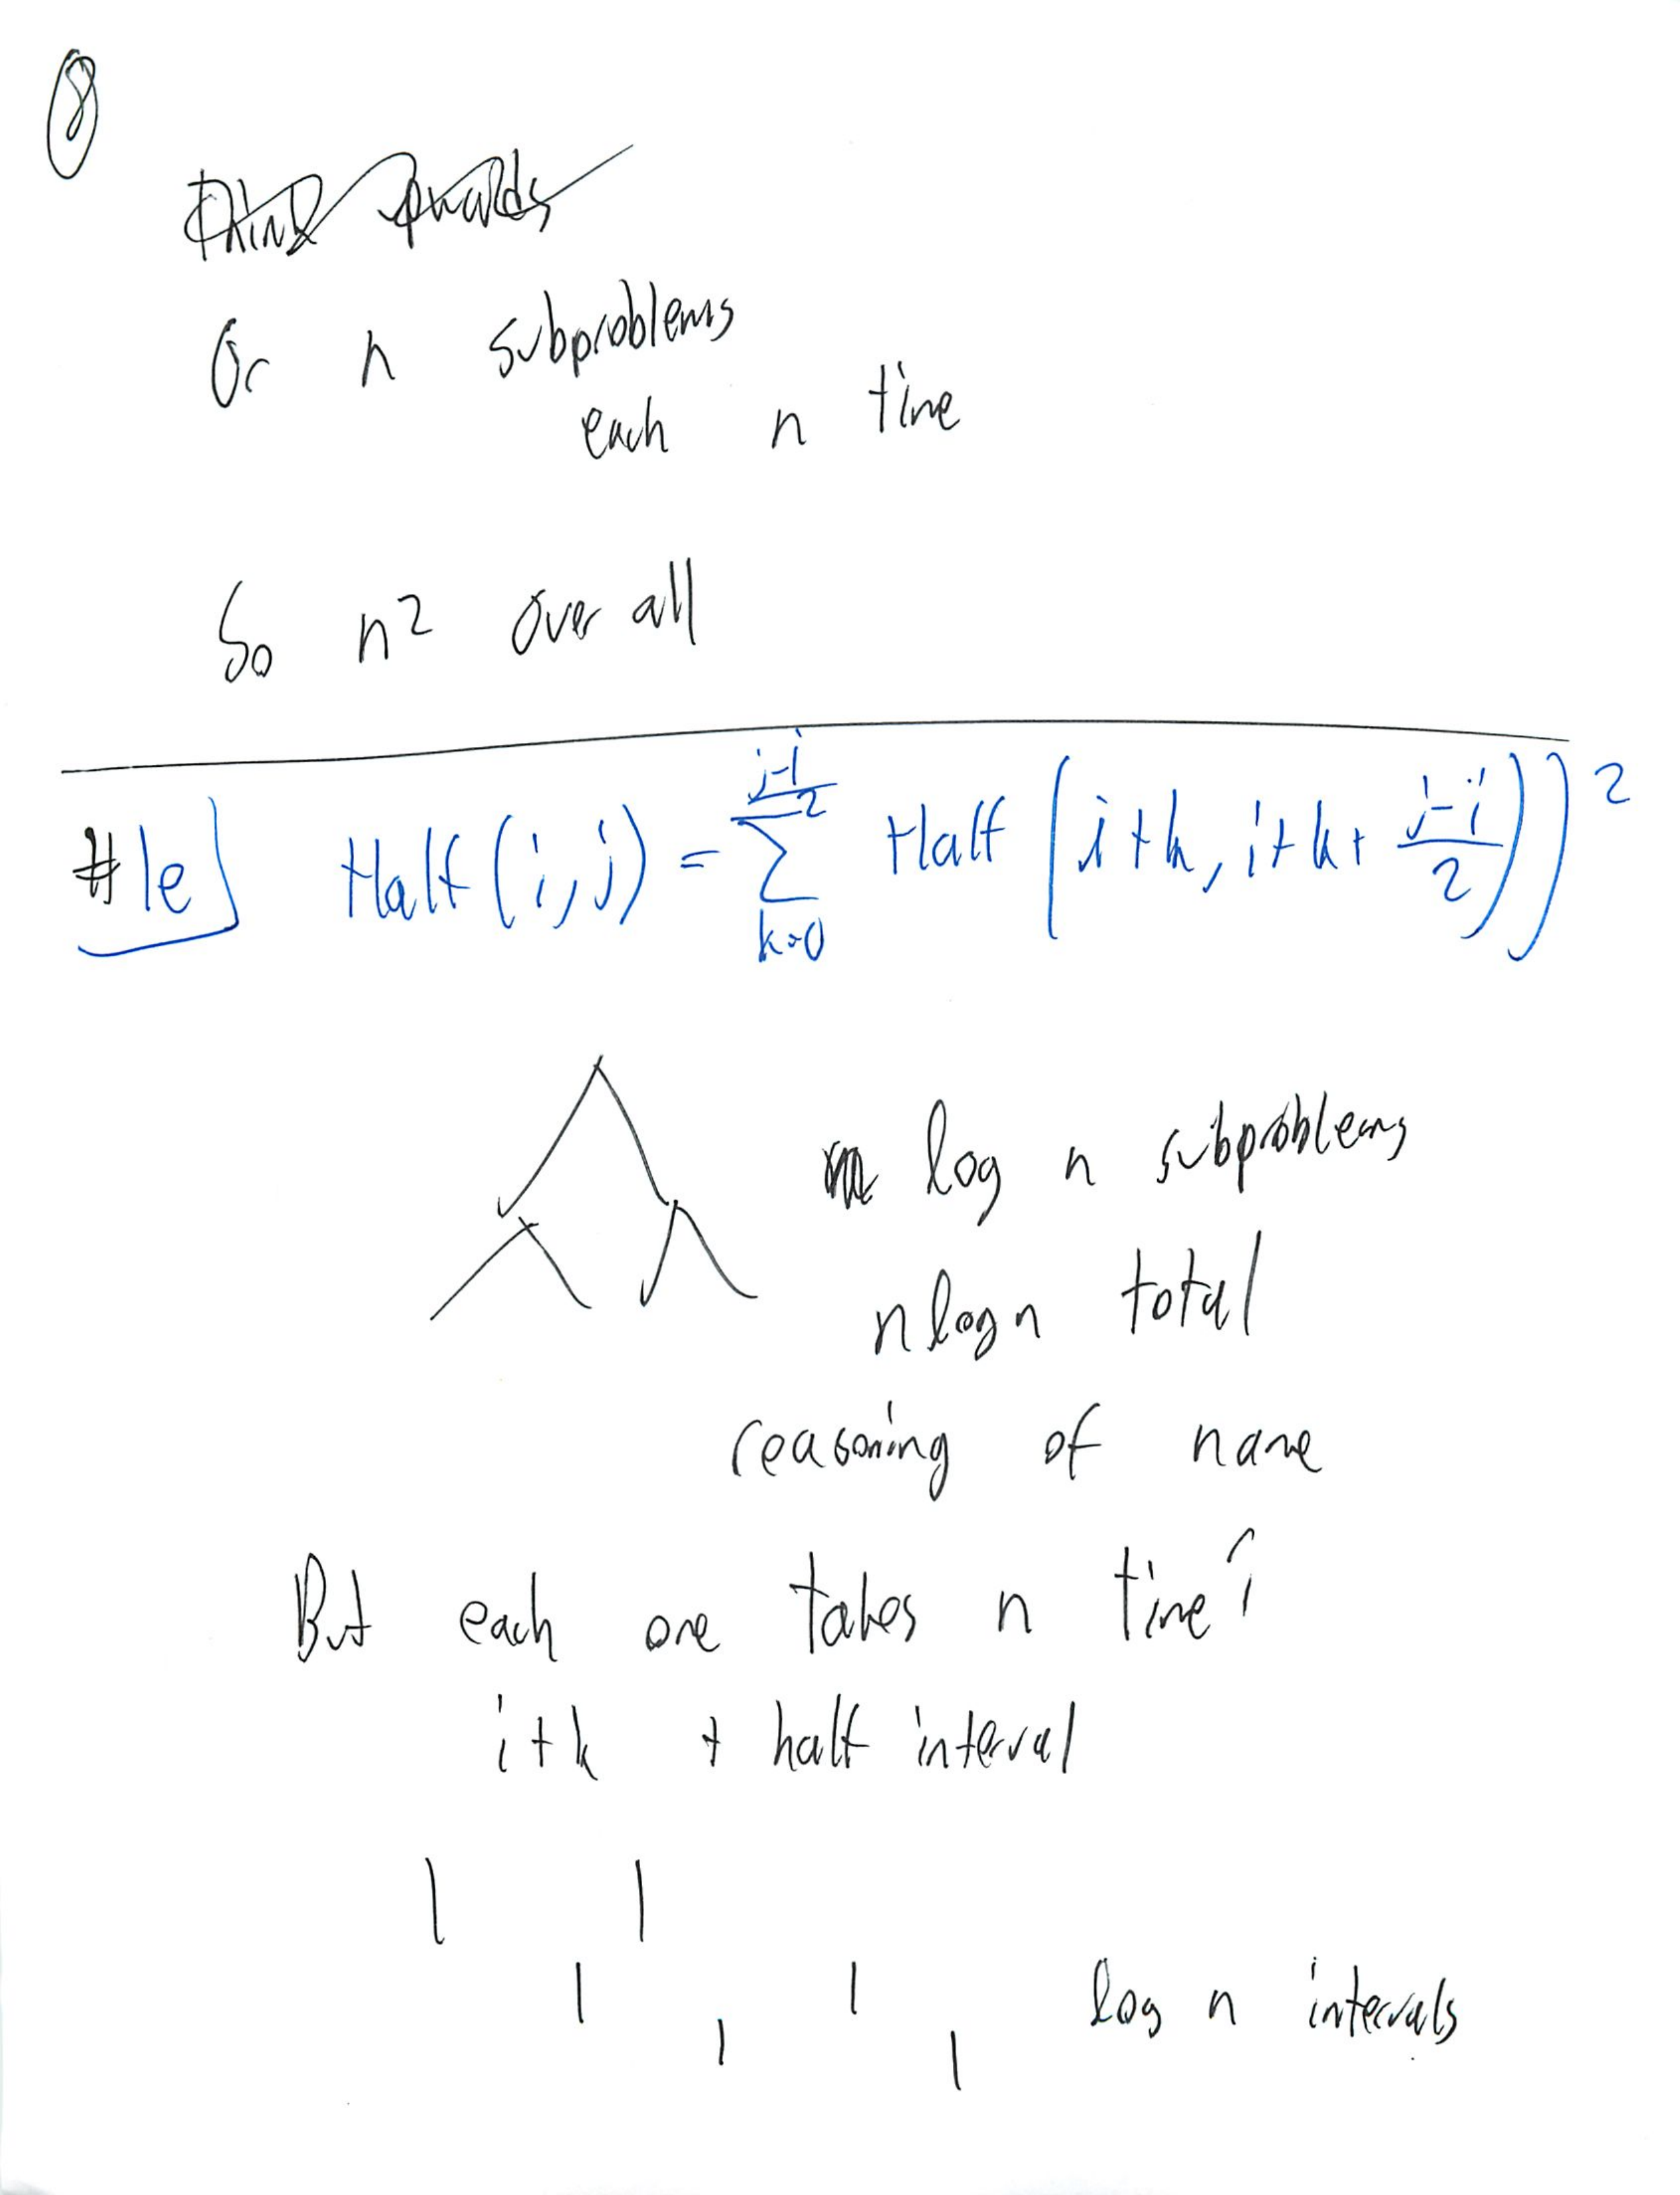 8
Or n subproblems
each n time
So n² over all
#1e] Half(i,j) = \sum_{k=0}^{\frac{j-i}{2}} Half(i+k, i+k+ \frac{j-i}{2}))²
log n subproblems
n log n total
reasoning of name
But each one takes n time?
i+k + half interval
log n intervals